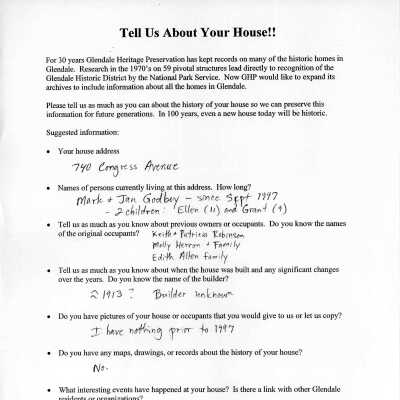 Tell Us About Your House!!
For 30 years Glendale Heritage Preservation has kept records on many of the historic homes in
Glendale. Research in the 1970's on 59 pivotal structures lead directly to recognition of the
Glendale Historic District by the National Park Service. Now GHP would like to expand its
archives to include information about all the homes in Glendale.
Please tell us as much as you can about the history of your house so we can preserve this
information for future generations. In 100 years, even a new house today will be historic.
Suggested information:
• Your house address
740 Congress Avenue
• Names of persons currently living at this address. How long?
Mark + Jan Godbey - since Sept 1997
- 2 children: Ellen (11) and Grant (9)
• Tell us as much as you know about previous owners or occupants. Do you know the names
of the original occupants? Keith + Patricia Robinson
Molly Herron + Family
Edith Allen family
• Tell us as much as you know about when the house was built and any significant changes
over the years. Do you know the name of the builder?
~ 1913? Builder unknown
• Do you have pictures of your house or occupants that you would give to us or let us copy?
I have nothing prior to 1997
• Do you have any maps, drawings, or records about the history of your house?
No.
• What interesting events have happened at your house? Is there a link with other Glendale
residents or organizations?